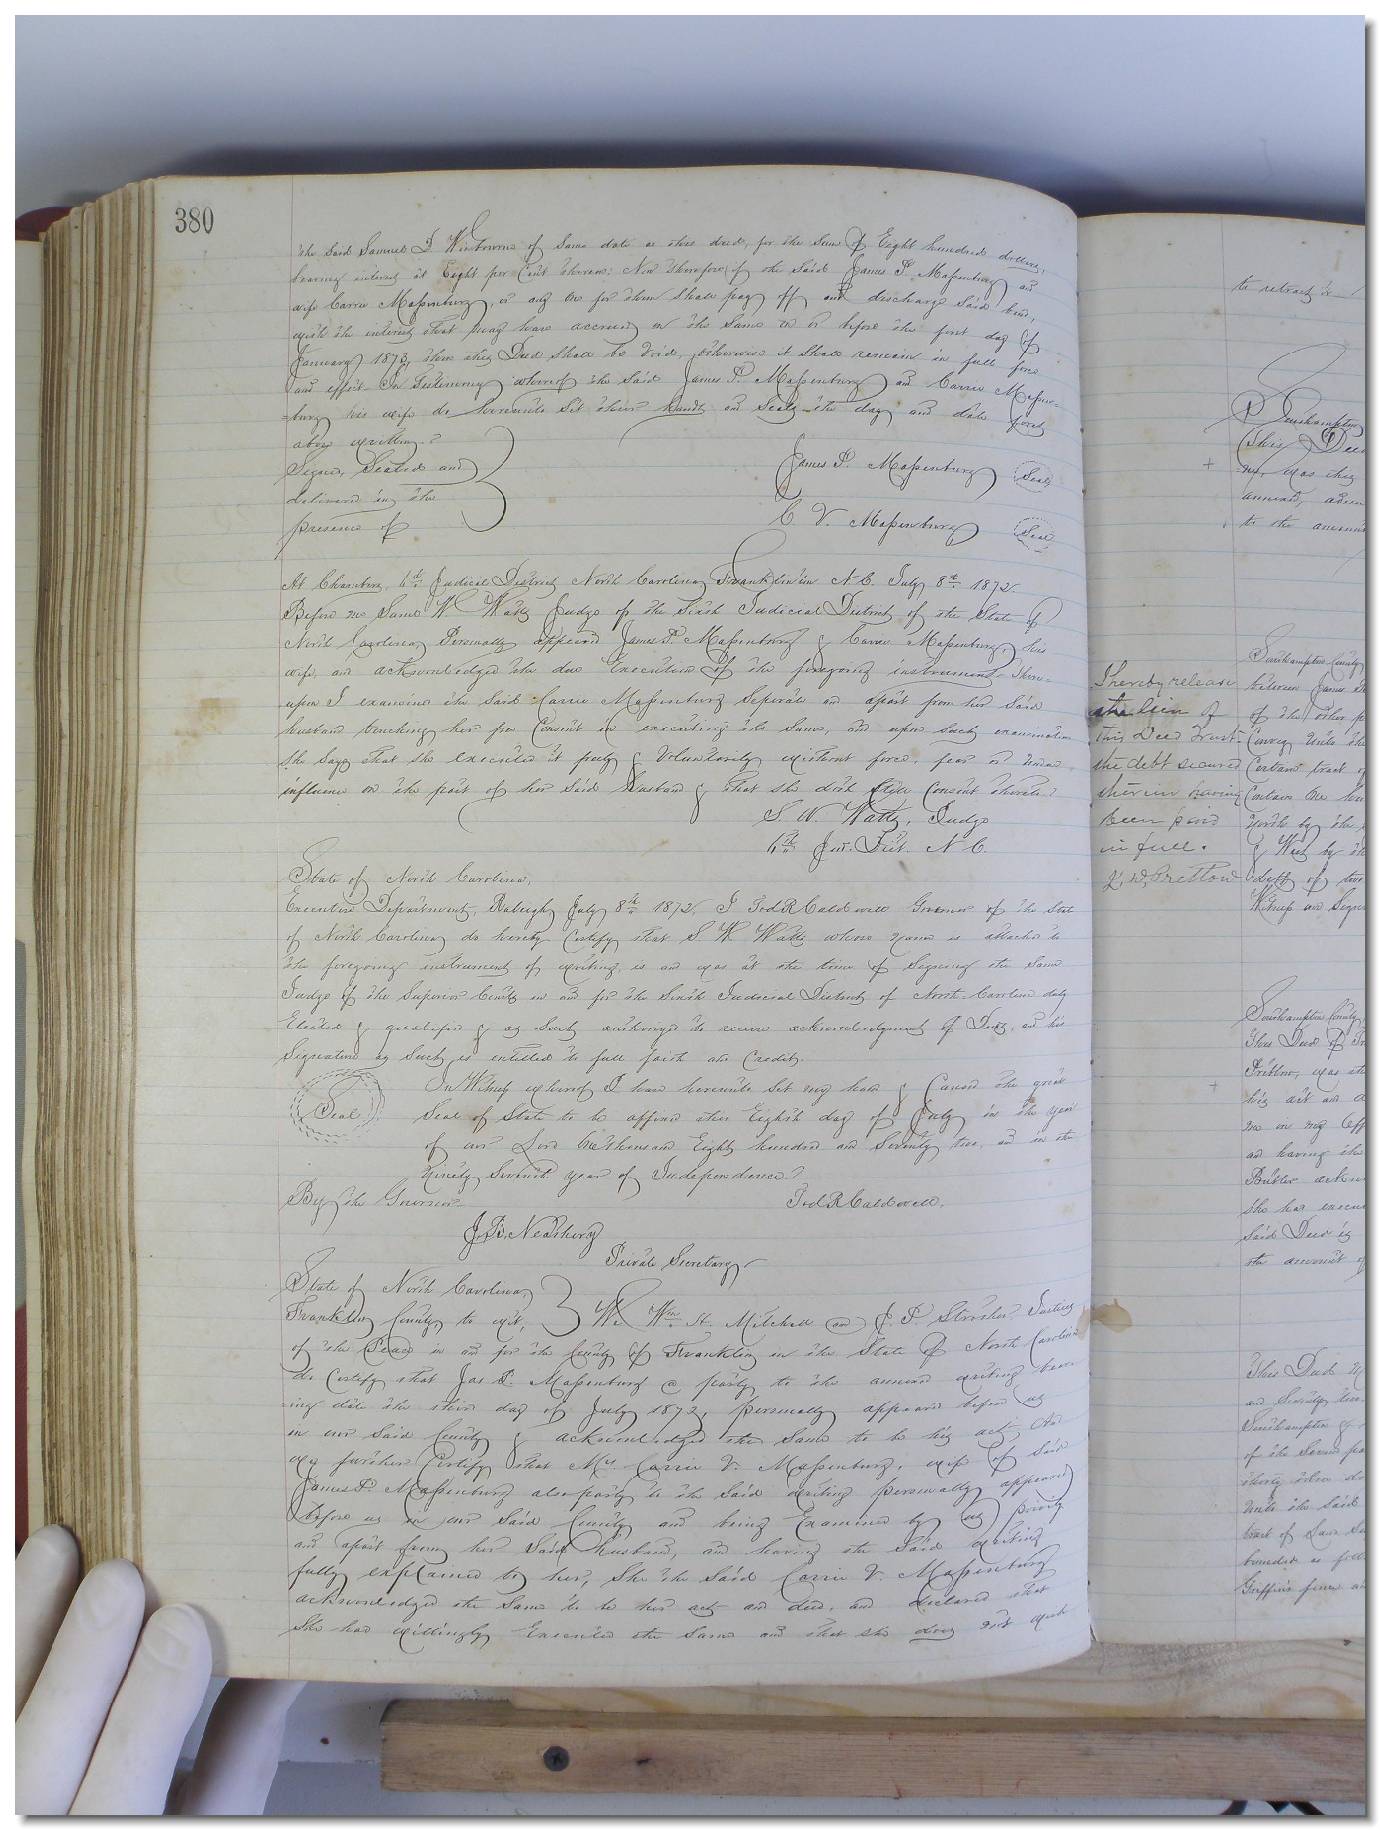 380
the said Samuel D Winborne of same date as this deed, for the sum of Eight hundred dollars,
bearing interest at Eight per Cent thereon: Now therefore if the said James P. Massenburg and
wife Carrie Massenburg, or any one for them shall pay off and discharge said bond,
with the interest that may have accrued on the same on or before the first day of
January 1873, then this Deed shall be void, otherwise it shall remain in full force
and effect. In Testimony whereof the said James P. Massenburg and Carrie Massen=
=burg his wife do hereunto set their hands and seals the day and date first
above written.
Signed, Sealed and
delivered in the
presence of
James P. Massenburg (Seal)
C V. Massenburg (Seal)
At Chambers, 6th Judicial District North Carolina Franklinton N.C. July 8th 1872.
Before me Saml W Watts Judge of the Sixth Judicial District of the State of
North Carolina, Personally appeared James P. Massenburg & Carrie Massenburg, his
wife, and acknowledged the due Execution of the foregoing instrument. There=
upon I examined the said Carrie Massenburg seperate and apart from her said
husband touching her free Consent in executing the same, and upon such examination
she says that she executed it freely & Voluntarily without force, fear or undue
influence on the part of her said husband & that she doth still Consent thereto.
S. W. Watts, Judge
6th Jud. Dist. N C.
State of North Carolina,
Executive Department, Raleigh July 8th 1872, I Tod R Caldwell Governor of the State
of North Carolina do hereby Certify that S. W. Watts whose name is attached to
the foregoing instrument of writing, is and was at the time of signing the same
Judge of the Superior Court in and for the Sixth Judicial District of North-Carolina duly
Elected & qualified & as such authorized to receive acknowledgment of Deeds, and his
Signature as such is entitled to full faith and Credit.
Seal
In Witness whereof I have hereunto set my hand & Caused the great
Seal of State to be affixed this Eighth day of July in the year
of our Lord One thousand Eight hundred and Seventy two, and in the
Ninety Seventh year of Independence.
By the Governor
Tod R Caldwell,
J. B. Neathery
Private Secretary
State of North Carolina,
Franklin County to wit,
We Wm H. Mitchell and J. P. Strother Justices
of the Peace in and for the County of Franklin in the State of North Carolina
do Certify that Jas P. Massenburg a party to the annexed writing bear
=ing date the third day of July 1872, personally appeared before us
in our said County & acknowledged the same to be his act, And
we further Certify that Mrs Carrie V. Massenburg, wife of said
James P. Massenburg also party to the said writing personally appeared
before us in our said County and being Examined by us privily
and apart from her said husband, and having the said writing
fully explained to her, She the said Carrie V. Massenburg
acknowledged the same to be her act and deed, and declared that
she had willingly Executed the same and that she does not wish
to retract it
Southampton
This Deed
was this
annexed,
to the
I hereby release
the lien of
this Deed Trust
the debt secured
therein having
been paid
in full.
J. D. Pretlow
Southampton County
between James
of the other
Convey unto the
Certain tract
Contains One hun
North by the
& West by
debt of two
Witness our Signa
Southampton County
This Deed of Tr
Pretlow, was
his act and
me in my Off
and having the
Butler ackn
she has execu
said Deed is
the amount of
This Deed
and Seventy two
Southampton &
of the Second pa
thirty
unto the said
tract of Land
bounded as foll
Griffin's